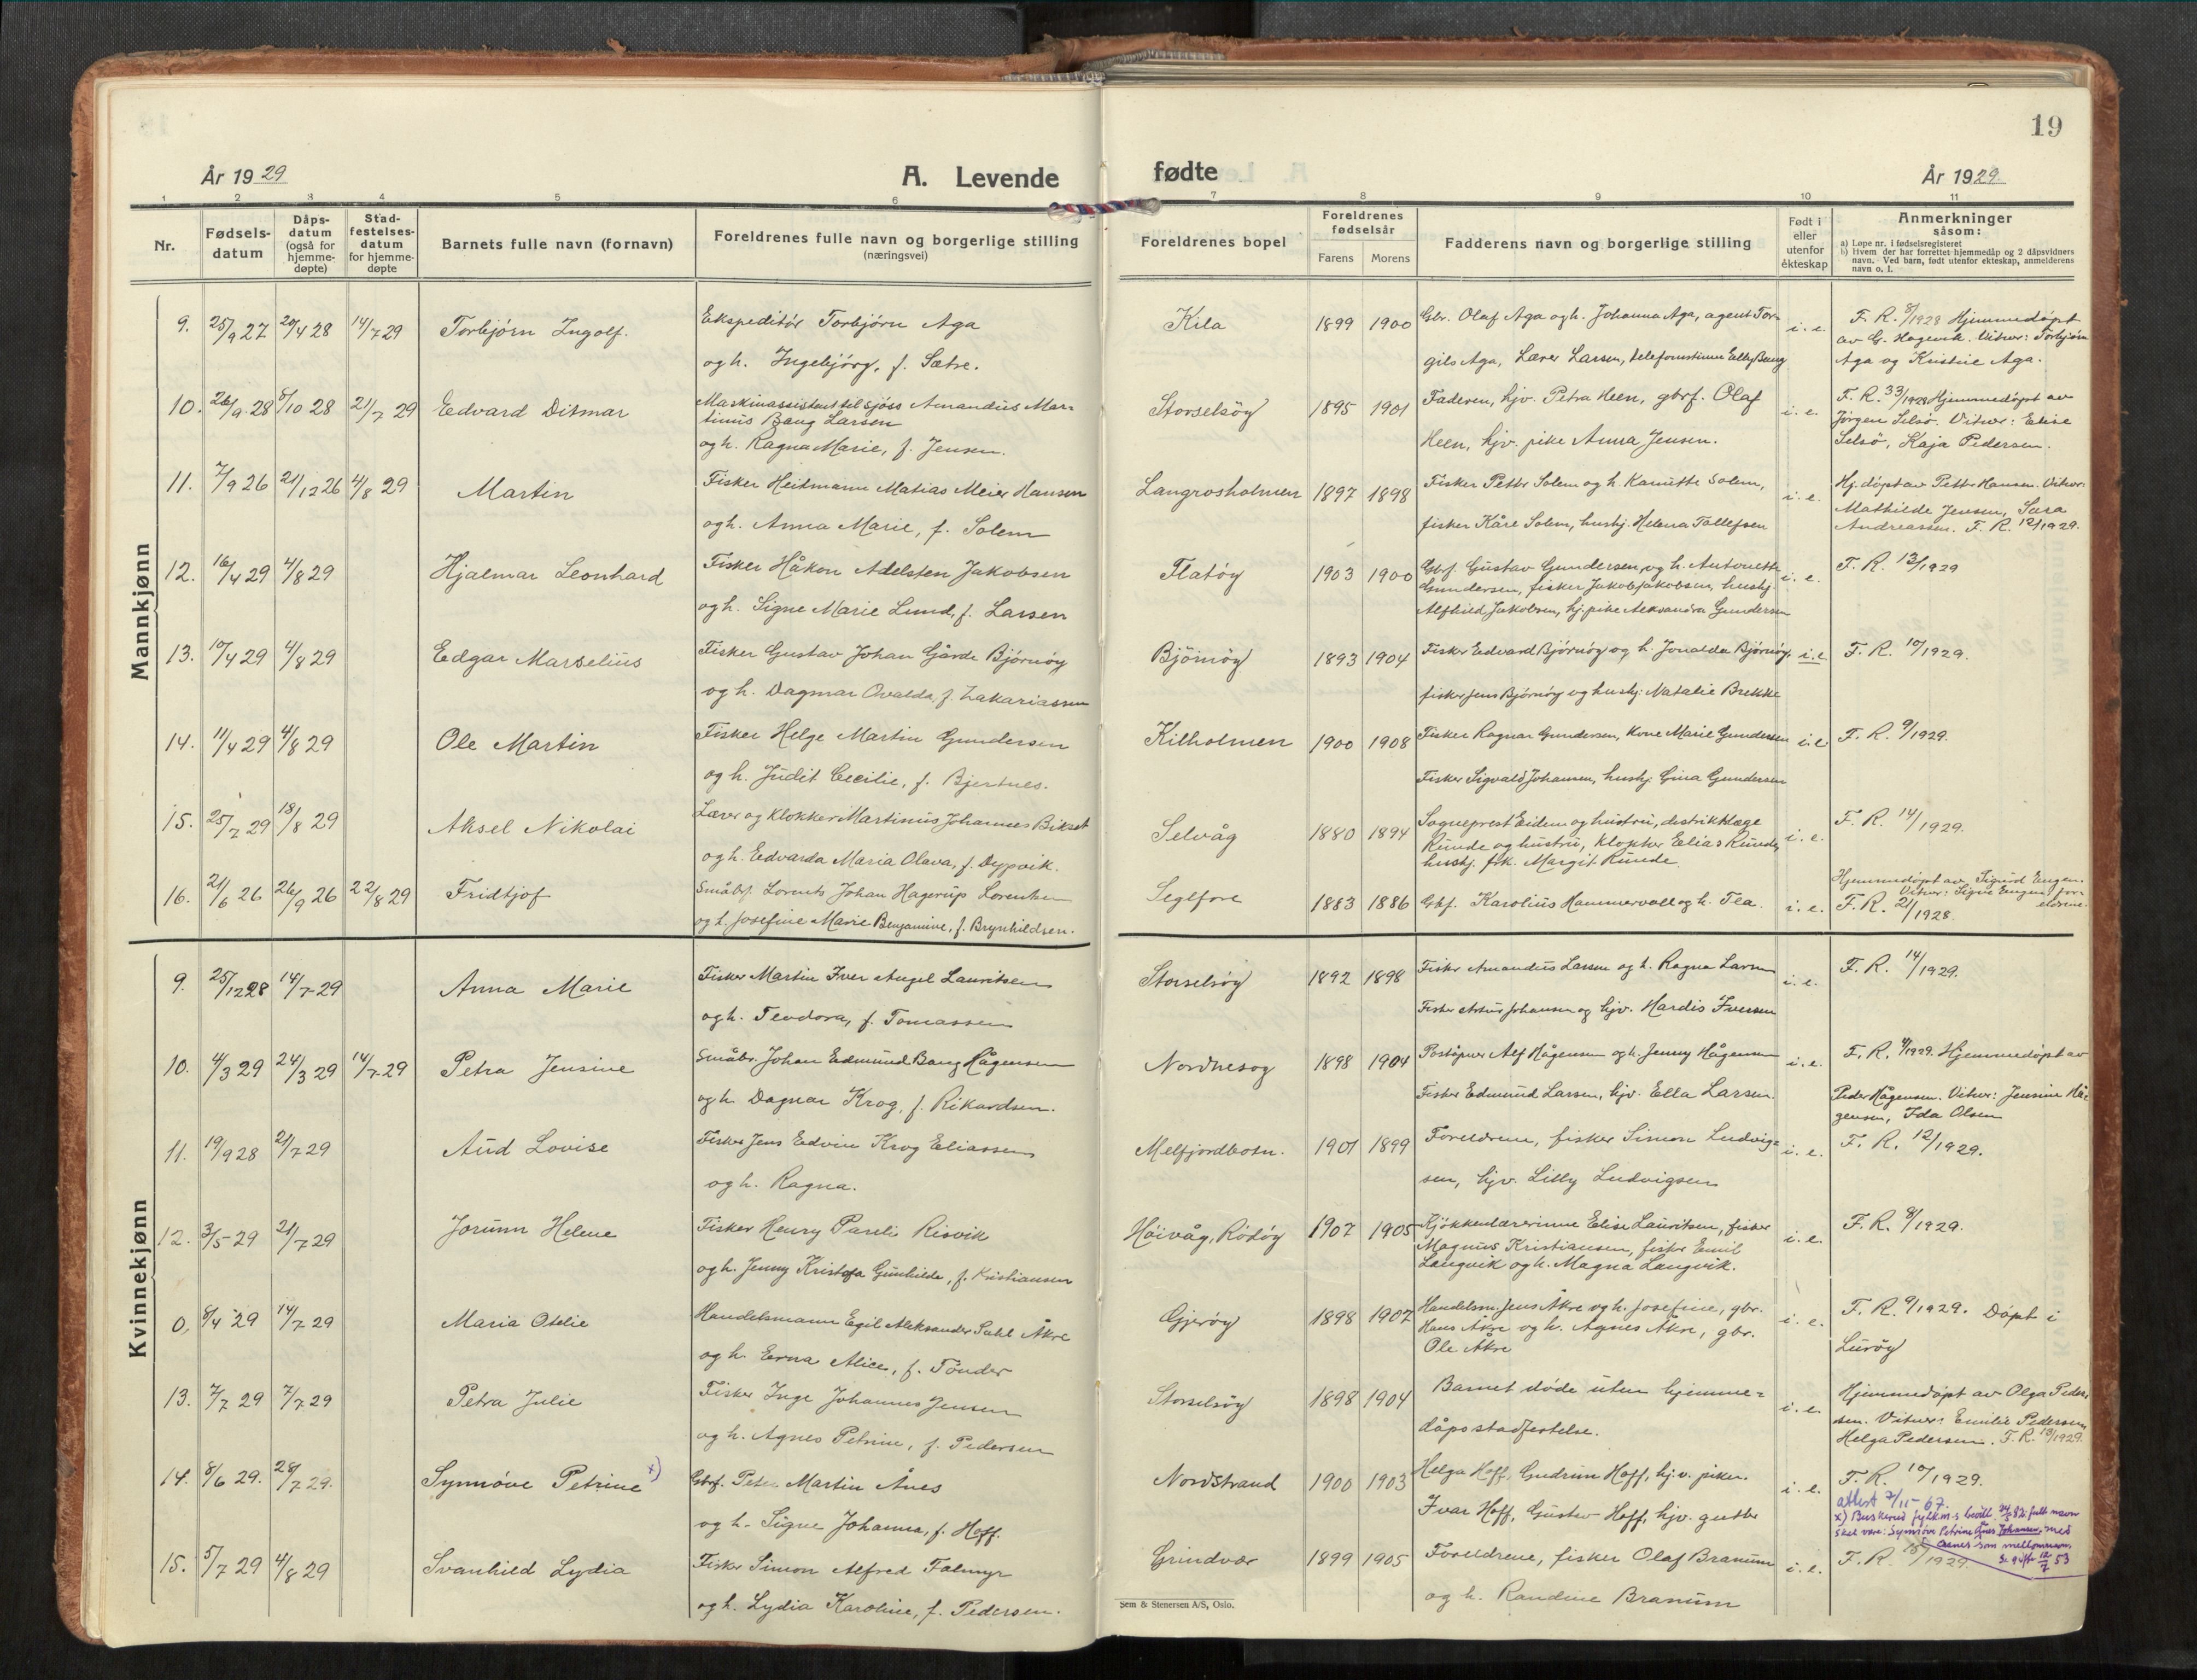 19
År 1929
A. Levende
fødte
År 1929.
1 2 3 4 5 6 7 8 9 10 11
Nr.
Fødsels-
datum
Dåps-
datum
(også for
hjemme-
døpte)
Stad-
festelses-
datum
for hjemme-
døpte
Barnets fulle navn (fornavn)
Foreldrenes fulle navn og borgerlige stilling
(næringsvei)
Foreldrenes bopel
Foreldrenes
fødselsår
Farens Morens
Fadderens navn og borgerlige stilling
Født i
eller
utenfor
ekteskap
Anmerkninger
såsom:
a) Løpe nr. i fødselsregisteret
b) Hvem der har forrettet hjemmedåp og 2 dåpsvidners
navn. Ved barn, født utenfor ekteskap, anmelderens
navn o. l.
Mannkjønn
9. 25/9 27 20/4 28 14/7 29 Torbjørn Ingolf.
Ekspeditør Torbjørn Aga
og h. Ingebjørg, f. Sætre.
Kila 1899 1900
Gbr. Olaf Aga og h. Johanna Aga, agent Tor-
gils Aga, Lærer Larsen, telefonistinne Elly Bang
i. e.
F. R. 8/1928 Hjemmedøpt
av G. Hagevik. Vitner: Torbjørn
Aga og Kristine Aga.
10. 26/9 28 8/10 28 21/7 29 Edvard Ditmar
Maskinassistent tilsjøss Amandus Mar-
tinus Bang Larsen
og h. Ragna Marie, f. Jensen.
Storselsøy 1895 1901
Faderen, hjv. Petra Heen, gbrf. Olaf
Heen, hjv. pike Anna Jensen.
i. e.
F. R. 33/1928 Hjemmedøpt av
Jørgen Selsö. Vitner: Elise
Selsö, Kaja Pedersen.
11. 7/9 26 21/12 26 4/8 29 Martin
Fisker Heitmann Matias Meier Hansen
og h. Anna Marie, f. Solem
Langrosholmen 1897 1898
Fisker Petter Solem og h. Kanutte Solem,
fisker Kåre Solem, hushj. Helena Tollefsen
i. e.
Hj. døpt av Petter Hansen. Vitner:
Mathilde Jensen, Sara
Andreassen. F. R. 12/1929.
12. 16/4 29 4/8 29 Hjalmar Leonhard
Fisker Håkon Adelsten Jakobsen
og h. Signe Marie Lund, f. Larsen
Flatøy 1903 1900
Gbf. Gustav Gundersen og h. Antonette
Gundersen, fisker Jakob Jakobsen, hushj.
Alfhild Jakobsen, hj. pike Aleksandra Gundersen
i. e.
F. R. 13/1929
13. 10/4 29 4/8 29 Edgar Marselius
Fisker Gustav Johan Gårde Bjørnøy
og h. Dagmar Ovalda, f. Zakariassen
Bjørnøy 1893 1904
Fisker Edvard Bjørnøy og h. Jonalda Bjørnøy,
fisker Jens Bjørnøy og hushj. Natalie Brekke
i. e.
F. R. 10/1929.
14. 11/4 29 4/8 29 Ole Martin
Fisker Helge Martin Gundersen
og h. Judit Cecilie, f. Bjertnes.
Kilholmen 1900 1908
Fisker Ragnar Gundersen, kone Marie Gundersen
Fisker Sigvald Johansen, hushj. Gina Gundersen
i. e
F. R. 9/1929.
15. 25/7 29 18/8 29 Aksel Nikolai
Lærer og klokker Martinus Johannes Bikset
og h. Edvarda Maria Olava, f. Dypvik.
Selvåg 1880 1894
Sogneprest Eidem og hustru, destriktlæge
Runde og hustru, klokker Elias Runde,
hushj. frk. Margit Runde
i. e.
F. R. 14/1929.
16. 21/6 26 26/9 26 22/8 29 Fridtjof
Småbr. Lorents Johan Hagerup Lorentsen
og h. Josefine Marie Benjamine, f. Brynhildsen.
Seglfore 1883 1886
Gbf. Karolius Hammervoll og h. Tea.
i. e.
Hjemmedøpt av Sigurd Engen.
Vitner: Signe Engen, for-
eldrene.
F. R. 21/1928.
Kvinnekjønn
9. 25/12 28 14/7 29 Anna Marie
Fisker Martin Iver Angel Lauritsen
og h. Teodora, f. Tomassen
Storselsøy 1892 1898
Fisker Amandus Larsen og h. Ragna Larsen
Fisker Artur Johansen og hjv. Hardis Iversen
i. e.
F. R. 14/1929.
10. 4/3 29 24/3 29 14/7 29 Petra Jensine
Småbr. Johan Edmund Bang Hågensen
og h. Dagmar Krog, f. Rikardsen.
Nordnesøy 1898 1904
Poståpner Alf Hågensen og h. Jenny Hågensen
Fisker Edmund Larsen, hjv. Ella Larsen.
i. e.
F. R. 4/1929. Hjemmedøpt av
Peder Hågensen. Vitner: Jensine Hå-
gensen, Ida Olsen
11. 19/9 28 21/7 29 Aud Lovise
Fisker Jens Edvin Krog Eliassen
og h. Ragna.
Melfjordbotn. 1901 1899
Foreldrene, fisker Simon Ludvig-
sen, hjv. Lilly Ludvigsen
i. e.
F. R. 12/1929.
12. 3/5 29 21/7 29 Jorunn Helene
Fisker Henry Pareli Risvik
og h. Jenny Kristofa Gunhilde, f. Kristiansen
Høivåg, Rödöy 1907 1905
Kjøkkenlærerinne Elise Lauritsen, fisker
Magnus Kristiansen, fisker Emil
Langvik og h. Magna Langvik.
i. e.
F. R. 8/1929.
0, 8/4 29 14/7 29 Maria Otelie
Handelsmann Egil Aleksander Dahl Åkre
og h. Erna Alice, f. Tönder
Gjerøy 1898 1907
Handelsm. Jens Åkre og h. Josefine, gbr.
Hans Åkre og h. Agnes Åkre, gbr.
Ole Åkre
i. e.
F. R. 9/1929. Døpt i
Lurøy
13. 7/7 29 7/7 29 Petra Julie
Fisker Inge Johannes Jensen
og h. Agnes Petrine, f. Pedersen
Storselsöy 1898 1904
Barnet døde uten hjemme-
dåpsstadfestelse.
i. e.
Hjemmedøpt av Olga Peder-
sen. Vitner: Emilie Pedersen
Helga Pedersen. F. R. 13/1929.
14. 8/6 29. 28/7 29. Synnöve Petrine x)
Gbrf. Peter Martin Ånes
og h. Signe Johanna, f. Hoff.
Nordstrand 1900 1903
Helga Hoff, Gudrun Hoff, hj.v. piker.
Ivar Hoff, Gustav Hoff, hjv. gutter
i. e.
F. R. 10/1929.
attest 7/11-67.
x) Buskerud fylkm.s bevill. 24/5 82: fullt navn
skal være: Synnöve Petrine Ånes Johansen, med
Aanes som mellomnavn
Se gift 12/7 53
15. 5/7 29 4/8 29 Svanhild Lydia
Fisker Simon Alfred Falmyr
og h. Lydia Karoline, f. Pedersen.
Grindvær 1899 1905
Foreldrene, fisker Olaf Branum
og h. Randine Branum
i. e.
F. R. 15/1929
Sem & Stenersen A/S, Oslo.